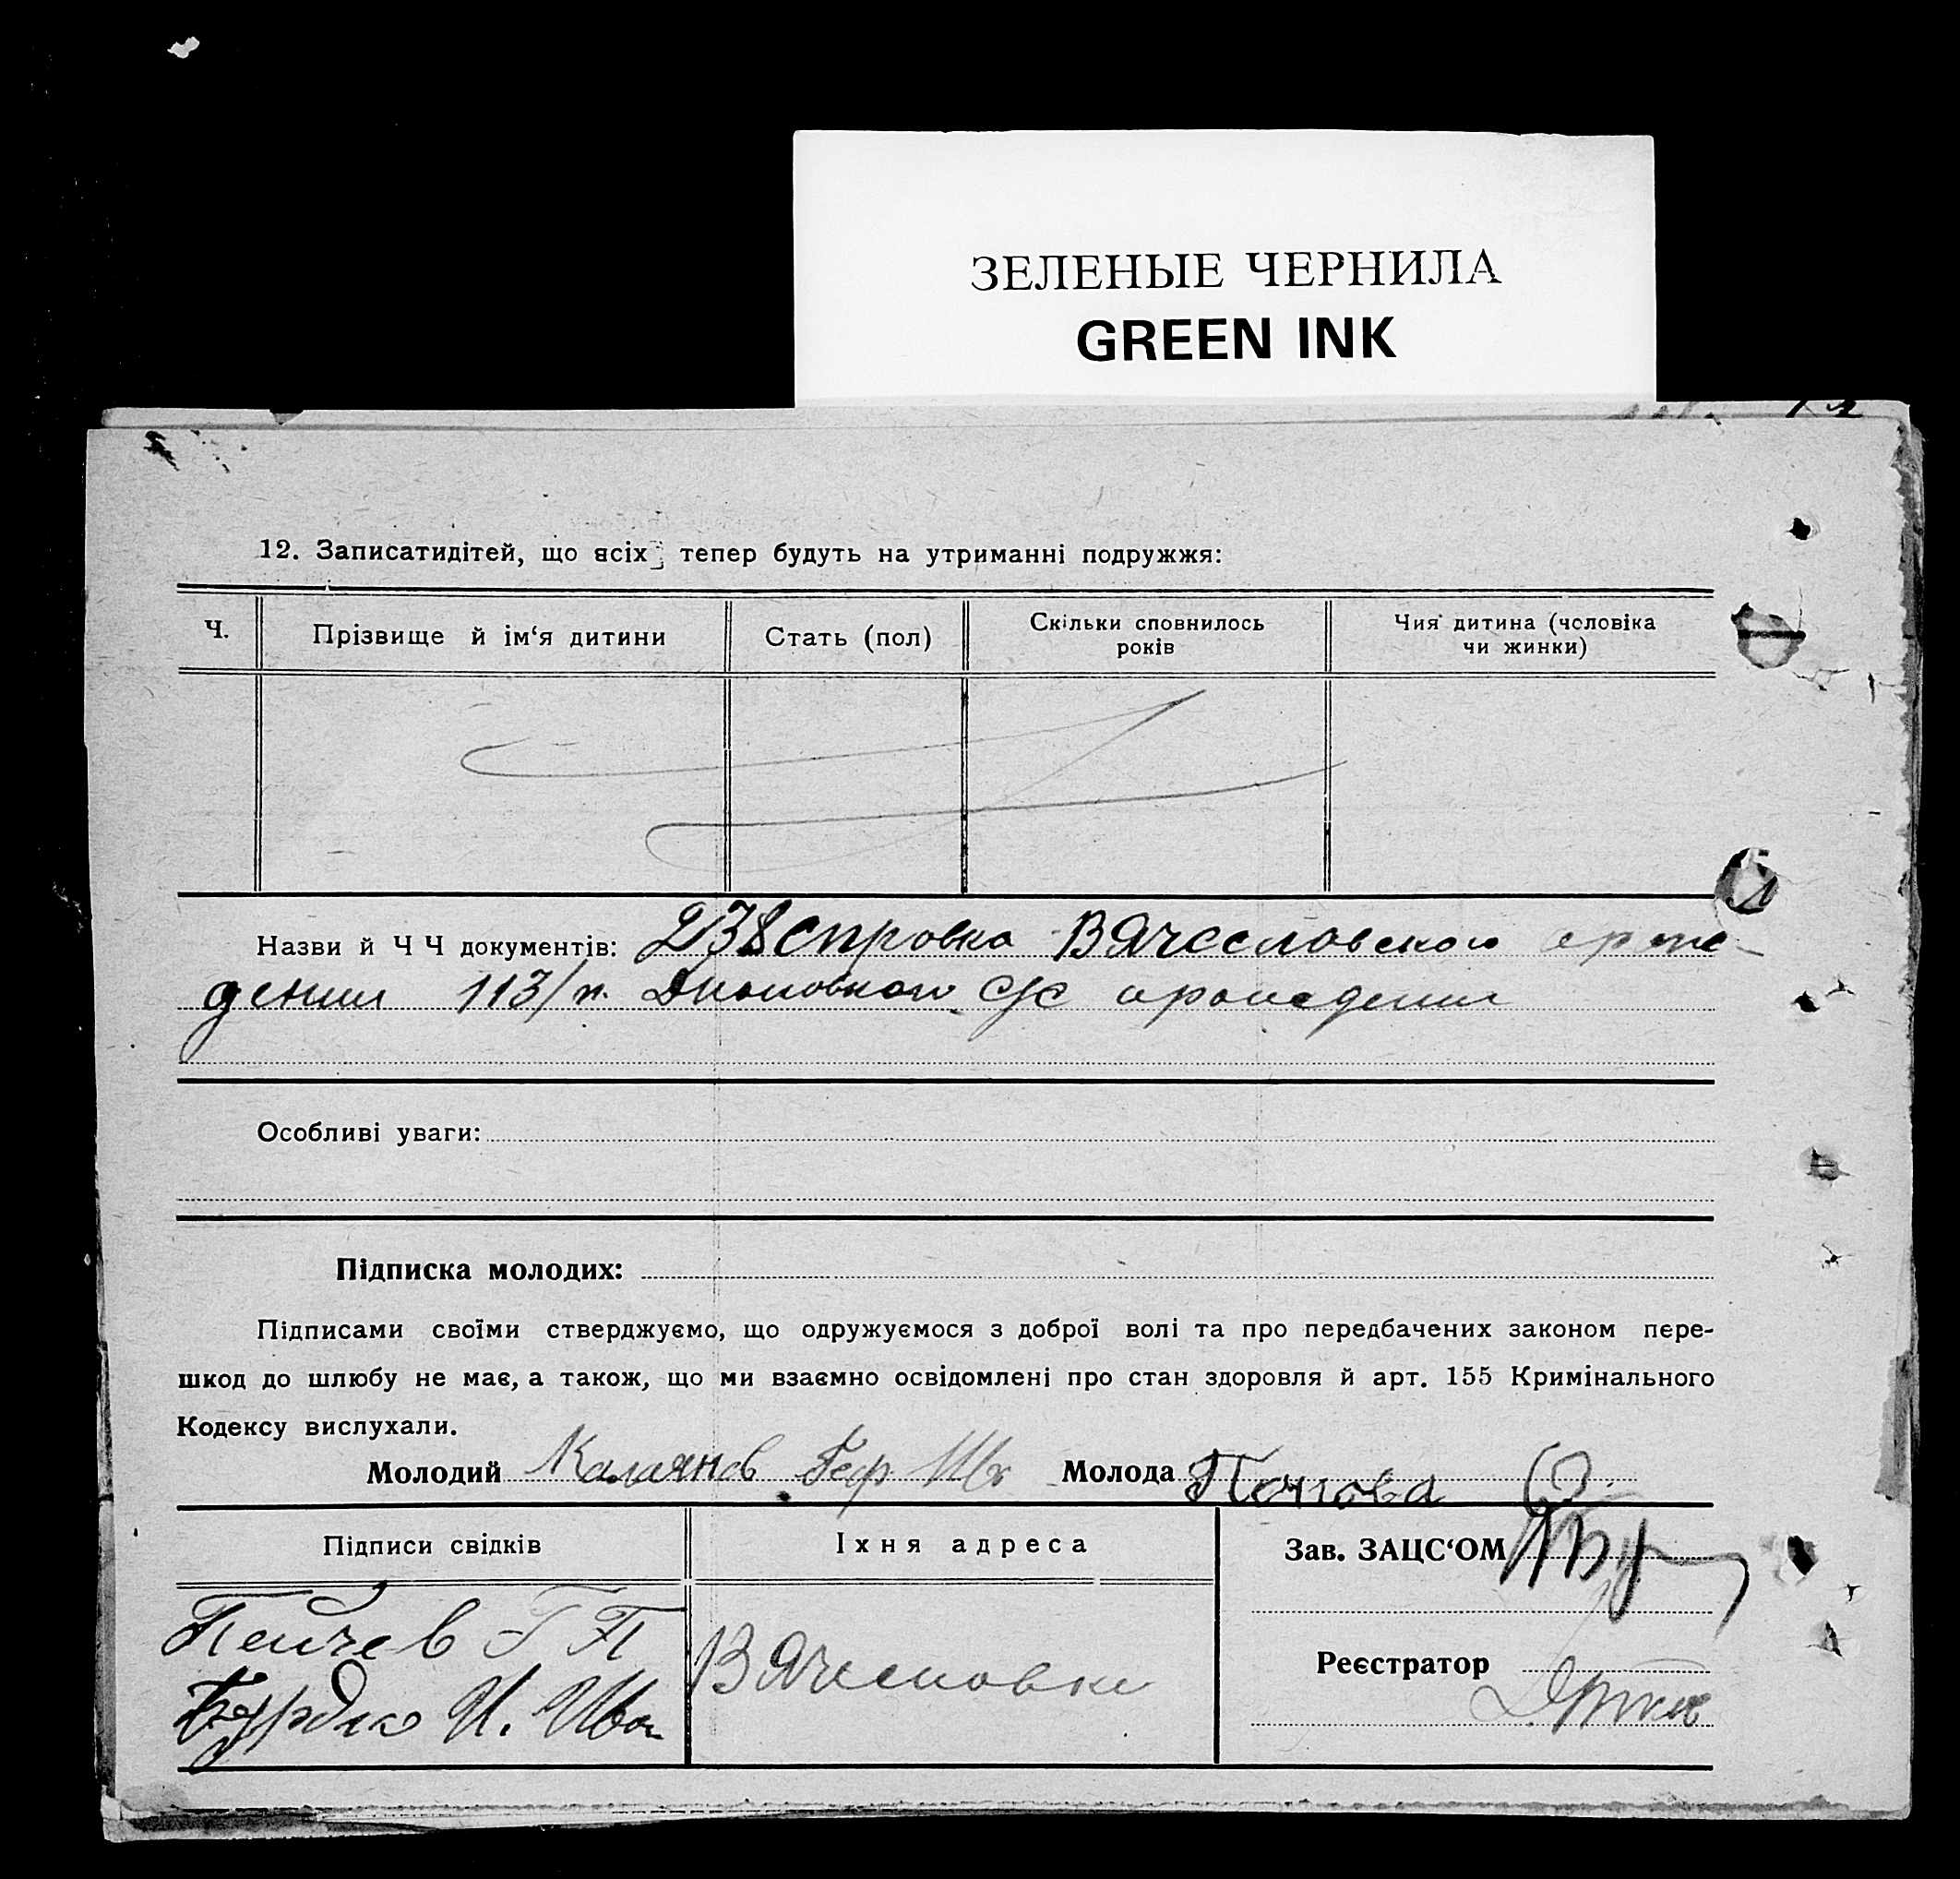 ЗЕЛЕНЫЕ ЧЕРНИЛА
GREEN INK
12. Записатидітей, що всіх тепер будуть на утриманні подружжя:
Ч.
Прізвище й ім‘я дитини
Стать (пол)
Скільки сповнилось
років
Чия дитина (чоловіка
чи жинки)
Назви й Ч Ч документів: справка Вячесловского
дении 113/п. с/с
Особливі уваги:
Підписка молодих:
Підписами своїми стверджуємо, що одружуємося з доброї волі та про передбачених законом пере-
шкод до шлюбу не має, а також, що ми взаємно освідомлені про стан здоровля й арт. 155 Кримінального
Кодексу вислухали.
Молодий Калаянов Молода Попова
Підписи свідків
Іхня адреса
Зав. ЗАЦС‘ОМ
Пейчев Г П
Вячесловке
Реєстратор
И. Ива